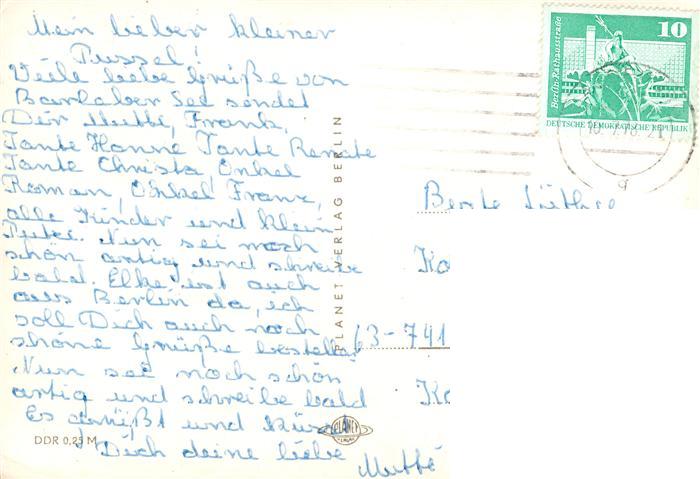 Mein lieber kleiner
Pussel!
Viele liebe Grüße von
Barleber See sendet
Dir Mutti, Frank,
Tante Hanne Tante Renate
Tante Christa, Onkel
Roman, Onkel Franz,
alle Kinder und klein
Nun sei noch
schön artig und schreibe
bald. Elke ist auch
aus Berlin da, ich
soll Dich auch noch
schöne Grüße bestellen
Nun sei noch schön
artig und schreibe bald
Es grüßt und küsst
Dich deine liebe
Mutti
DDR 0,25 M
PLANET VERLAG BERLIN
PLANET
VERLAG
10
Berlin, Rathausstraße
DEUTSCHE DEMOKRATISCHE REPUBLIK
Ko
63-741
Ko